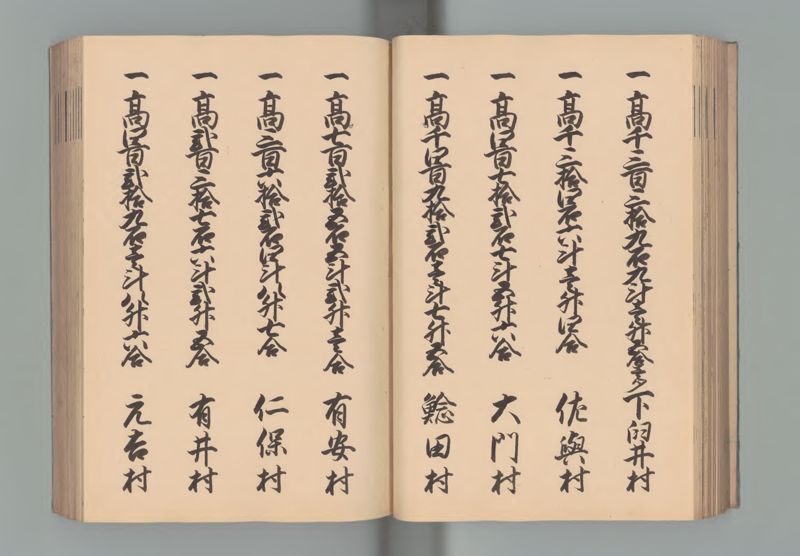 一髙千三百三拾九石九斗壱升五合壱夕下臼井村
一髙千三拾四石六斗壱升四合佐與村
一髙四百七拾弐石七斗五升六合大門村
一髙千四百九拾弐石壱斗七升五合鯰田村
一髙七百弐拾五石五斗弐升壱合有安村
一髙三百六拾弐石四斗八升七合仁保村
一髙弐百三拾七石六斗弐升五合有井村
一髙四百弐拾九石壱斗八升六合元吉村